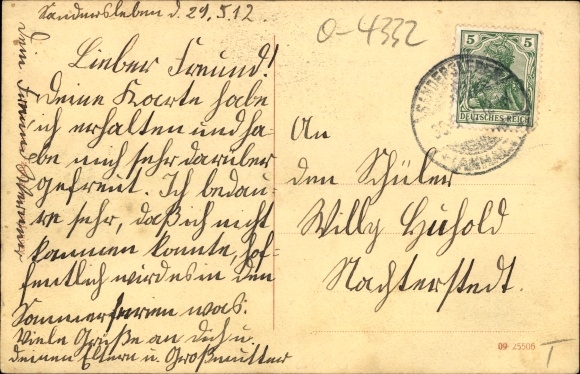 Sandersleben d. 29.5.12
Lieber Freund!
Deine Karte habe
ich erhalten und ha-
be mich sehr darüber
gefreut. Ich bedau-
re sehr, daß ich nicht
kommen konnte, hof-
fentlich wird es in den
Sommerferien was.
Viele Grüße an dich u.
deinen Eltern u. Großmutter
Dein Freund
0-4332
5 5
DEUTSCHES REICH
SANDERSLEBEN
(ANHALT)
An
den Schüler
Willy Huhold
Nachterstedt.
09 25506
T